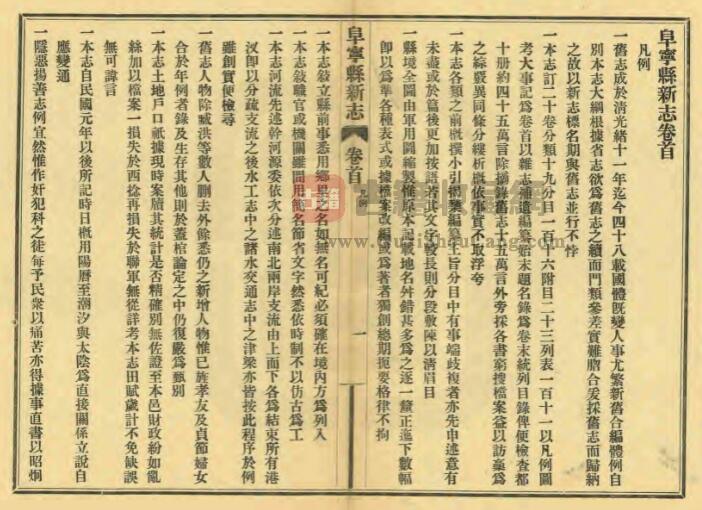 阜寧縣新志卷首
凡例
一舊志成於清光緒十一年迄今四十八載國體既變人事尤繁新舊合編體例自
別本志大綱根據省志欲為舊志之續而門類參差實難脗合爰採舊志而歸納
之故以新志標名期與舊志並行不悖
一本志訂二十卷分類十九分目一百十六附目二十三列表一百十一以凡例圖
考大事記為卷首以雜志補遺編纂始末題名錄為卷末統列目錄俾便檢查都
十册約四十五萬言除摘錄舊志十五萬言外旁採各書窮搜檔案益以訪稾為
之綜嚴異同條分縷析概依事實不取浮夸
一本志各類之前概撰小引揭櫫編纂主旨分目中有事端歧複者亦先申述意有
未盡或於篇後更加按語若其文字較長則分段敷陳以清眉目
一縣境全圖由軍用圖縮製惟原本記載地名舛錯甚多為之逐一釐正迤下數幅
即以為準各種表式或據檔案改編或為著者獨創總期扼要格律不拘
阜寧縣新志
卷首
凡例
一
一本志敍立縣前事悉用鄉邑之名如無名可紀必須確在境內方為列入
一本志敍職官或機關雖間用簡名節省文字然悉依時制不以仿古為工
一本志河流先述幹河源委依次分述南北兩岸支流由上而下各為結束所有港
汊即以分疏支流之後水工志中之諸水交通志中之津梁亦皆按此程序於例
雖創實便檢尋
一舊志人物除臧洪等數人刪去外餘悉仍之新增人物惟已旌孝友及貞節婦女
合於年例者錄及生存其他則於蓋棺論定之中仍復嚴為甄別
一本志土地戶口祇據現時案牘其統計是否精確別無佐證至本邑財政紛如亂
絲加以檔案一損失於西捻再損失於聯軍無從詳考本志田賦歲計不免缺誤
無可諱言
一本志自民國元年以後所記時日概用陽曆至潮汐與太陰為直接關係立說自
應變通
一隱惡揚善志例宜然惟作奸犯科之徒每予民衆以痛苦亦得據事直書以昭炯
古籍收藏網
www.gujishuquang.com